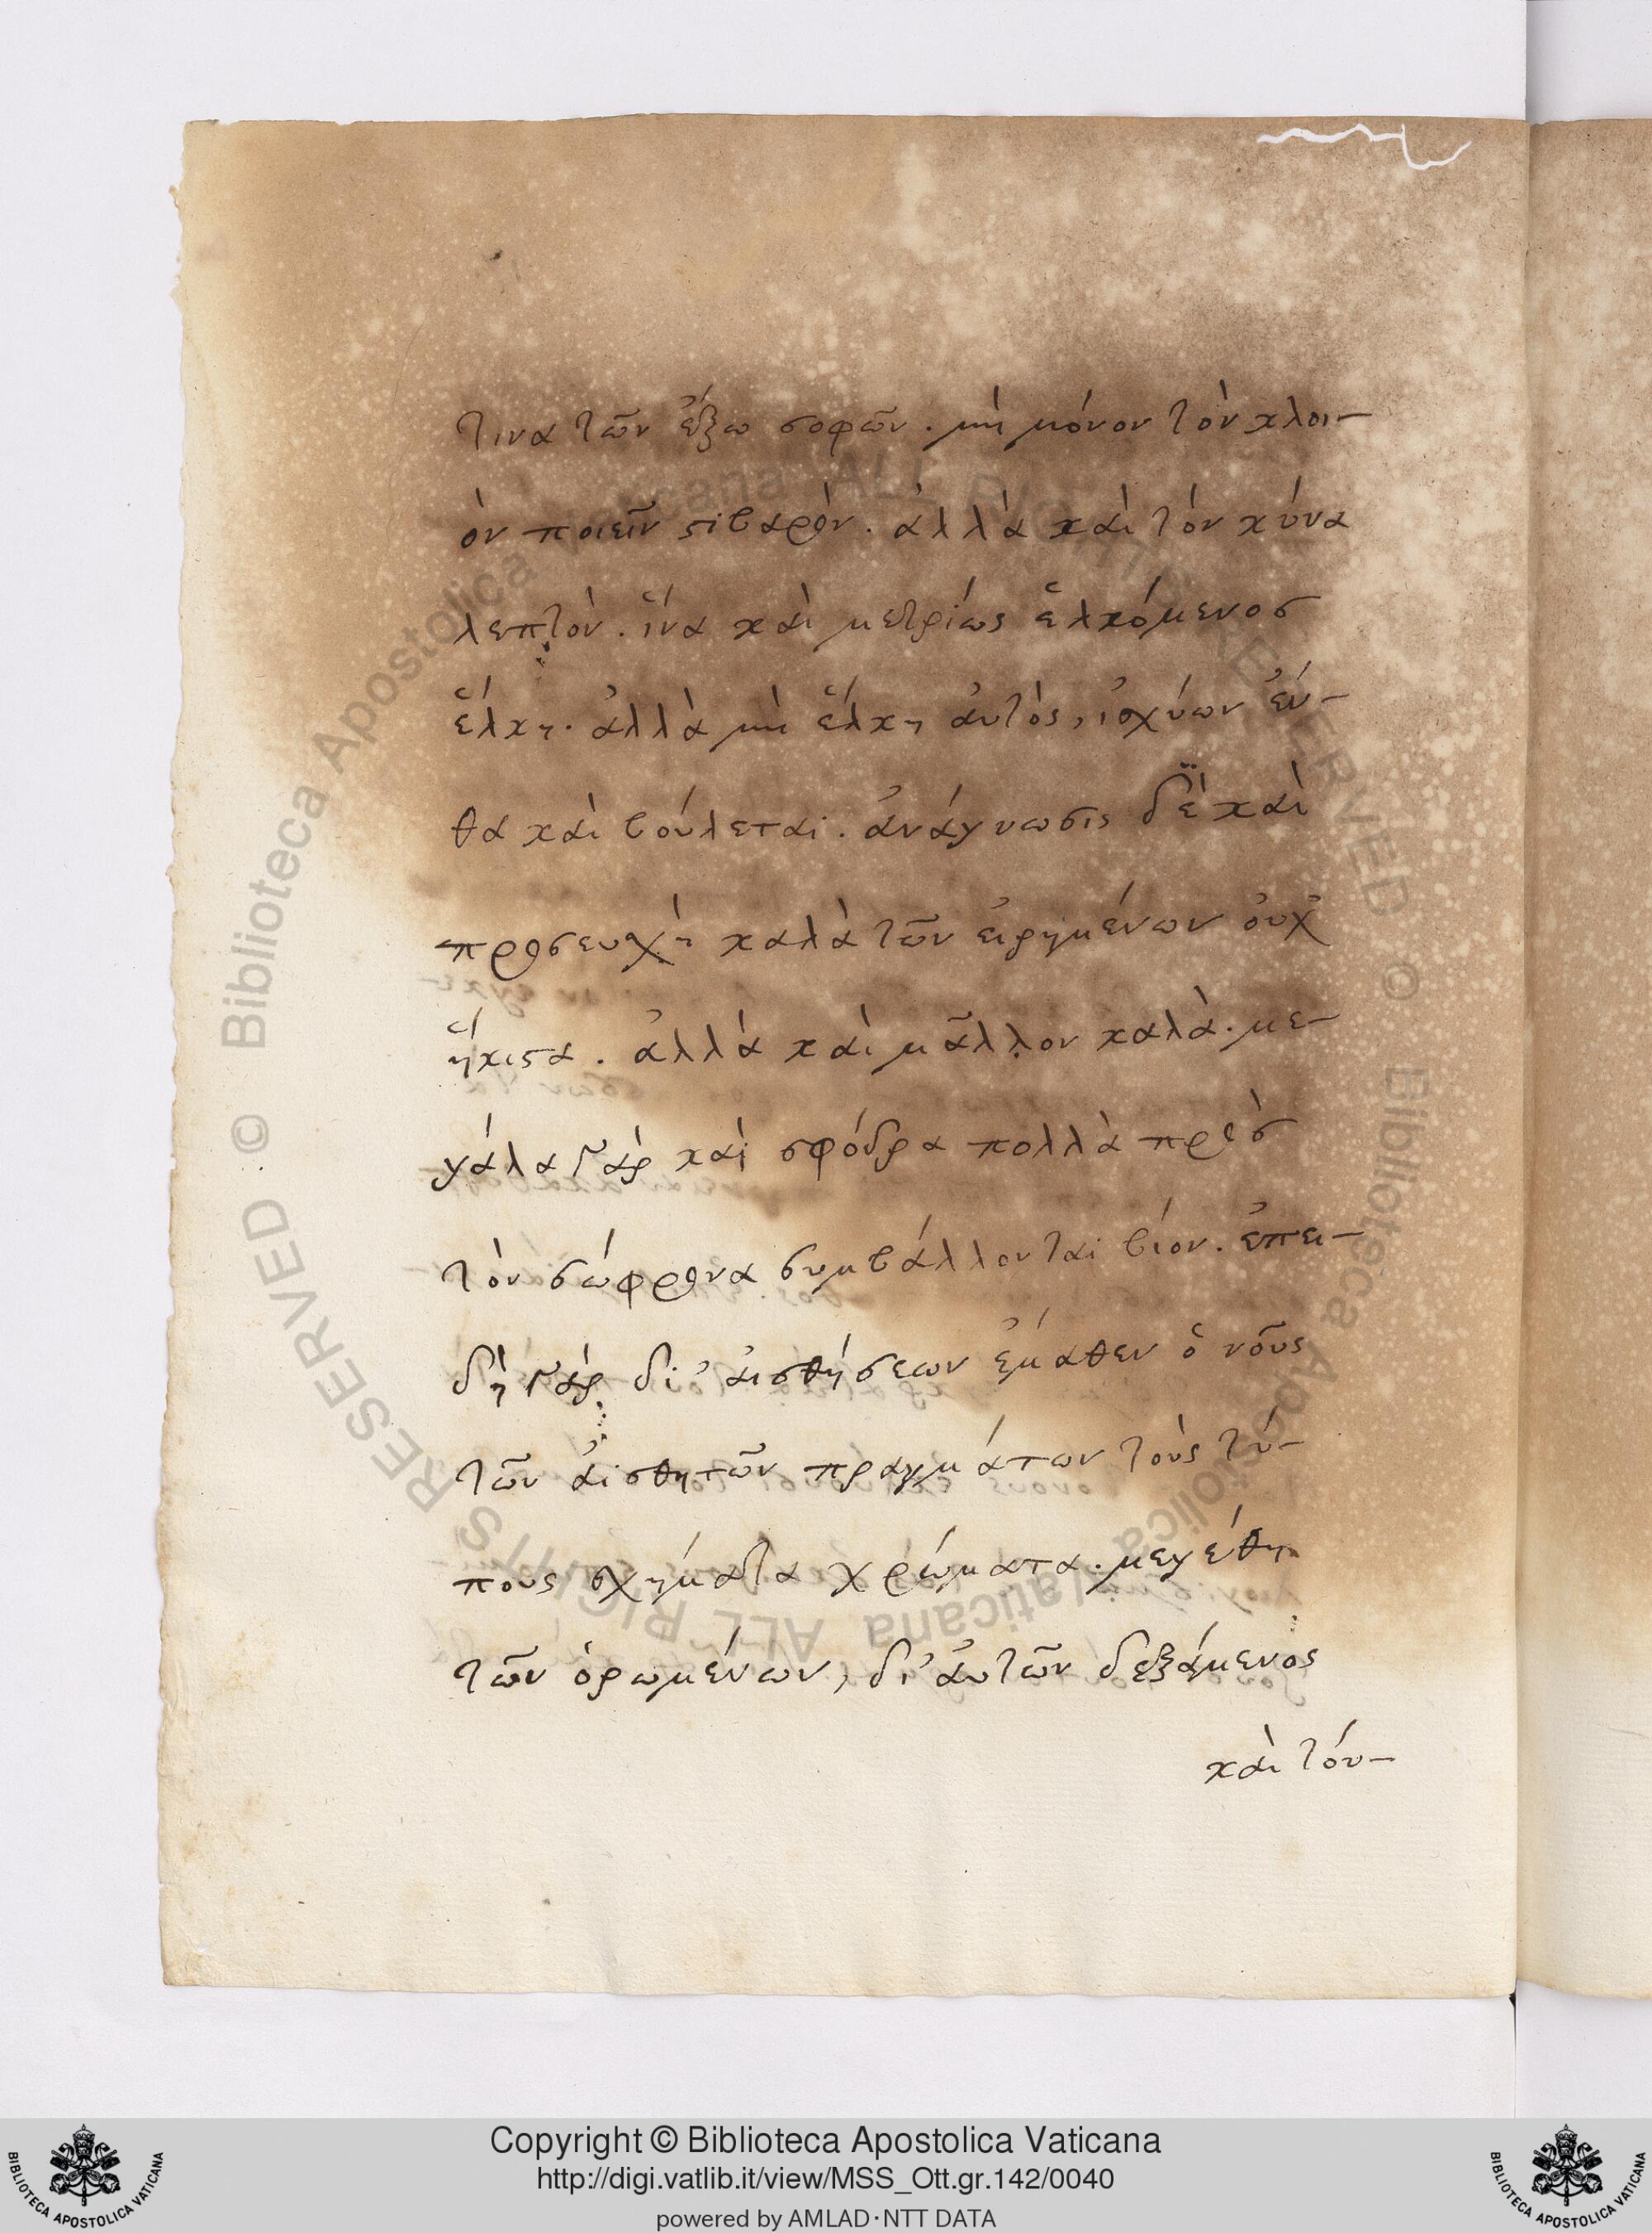 τινα τῶν ἔξω σοφῶν. μὴ μόνον τὸν κλοι-
ὸν ποιεῖν στιβαρὸν. ἀλλὰ καὶ τόν κύνα
λεπτὸν. ἵνα καὶ μετρίως ἑλκόμενος
ἕλκη. ἀλλὰ μὴ ἕλκη ἀυτὸς, ἰσχύων ἔν-
θα καὶ βούλεται. ἀνάγνωσις δὲ καὶ
προσευχὴ καλὰ τῶν ἐιρημένων ὀυχ̓
ἥκιστα. ἀλλά καὶ μᾶλλον καλὰ. με-
γάλα γὰρ καὶ σφόδρα πολλὰ πρὸς
τὸν σώφρονα συμβάλλονται βίον. ἐπει-
δὴ γὰρ δι' ἀισθήσεων ἔμαθεν ὁ νοῦς
τῶν ἀισθητῶν πραγμάτων τοὺς τύ-
πους σχήματα χρώματα. μεγέθη
τῶν ὁρωμένων, δι' ἀυτῶν δεξάμενος
καὶ τόυ-
Copyright © Biblioteca Apostolica Vaticana
http://digi.vatlib.it/view/MSS_Ott.gr.142/0040
powered by AMLAD·NTT DATA
BIBLIOTECA APOSTOLICA VATICANA
BIBLIOTECA APOSTOLICA VATICANA
© Biblioteca Apostolica Vaticana ALL RIGHTS RESERVED
© Biblioteca Apostolica Vaticana ALL RIGHTS RESERVED